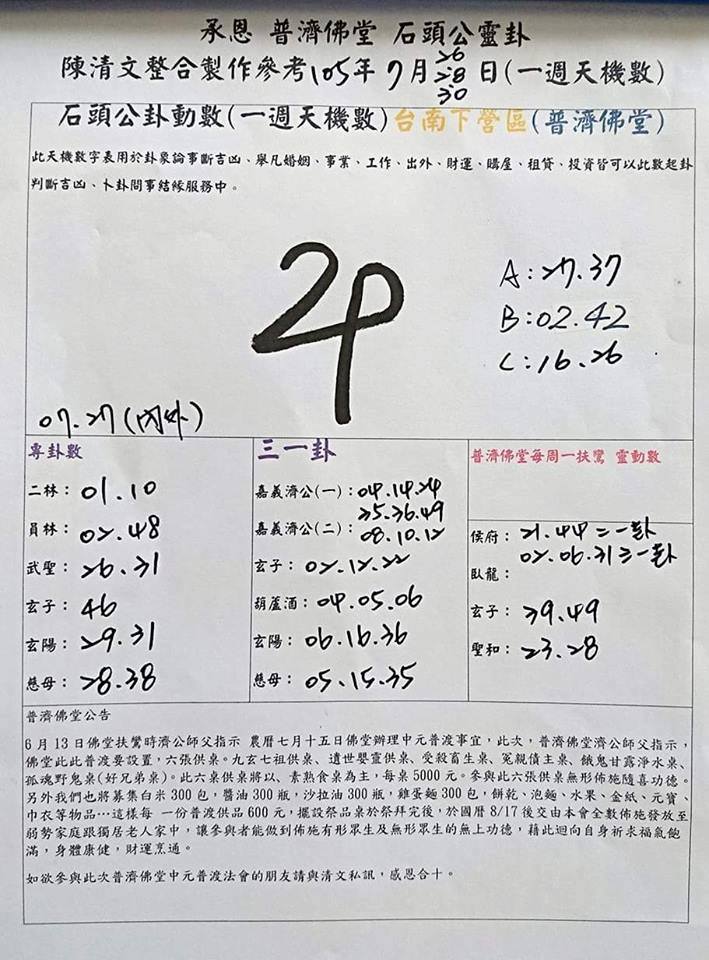 承恩 普濟佛堂 石頭公靈卦
26
陳清文整合製作參考105年7月28日(一週天機數)
30
石頭公卦動數(一週天機數)台南下營區(普濟佛堂)
此天機數字表用於卦象論事斷吉凶、舉凡婚姻、事業、工作、出外、財運、購屋、租貸、投資皆可以此數起卦
判斷吉凶、卜卦問事結緣服務中。
A:27.37
B:02.42
C:16.26
07.27(內外)
專卦數
二林：01.10
員林：02.48
武聖：26.31
玄子：46
玄陽：29.31
慈母：28.38
三一卦
嘉義濟公(一)：04.14.24
35.36.49
嘉義濟公(二)：08.10.12
玄子：02.12.22
葫蘆酒：04.05.06
玄陽：06.16.36
慈母：05.15.35
普濟佛堂每周一扶鸞 靈動數
侯府：21.44二一卦
02.06.31三一卦
臥龍：
玄子：39.49
聖和：23.28
普濟佛堂公告
6月13日佛堂扶鸞時濟公師父指示 農曆七月十五日佛堂辦理中元普渡事宜，此次，普濟佛堂濟公師父指示，
佛堂此此普渡要設置，六張供桌。九玄七祖供桌、遺世嬰靈供桌、受殺畜生桌、冤親債主桌、餓鬼甘露淨水桌、
孤魂野鬼桌(好兄弟桌)。此六桌供桌將以、素熟食桌為主，每桌5000元。參與此六張供桌無形佈施隨喜功德。
另外我們也將募集白米300包，醬油300瓶，沙拉油300瓶，雞蛋麵300包，餅乾、泡麵、水果、金紙、元寶、
巾衣等物品…這樣每 一份普渡供品600元，擺設祭品桌於祭拜完後，於國曆8/17後交由本會全數佈施發放至
弱勢家庭跟獨居老人家中，讓參與者能做到佈施有形眾生及無形眾生的無上功德，藉此迴向自身祈求福氣飽
滿，身體康健，財運亨通。
如欲參與此次普濟佛堂中元普渡法會的朋友請與清文私訊，感恩合十。